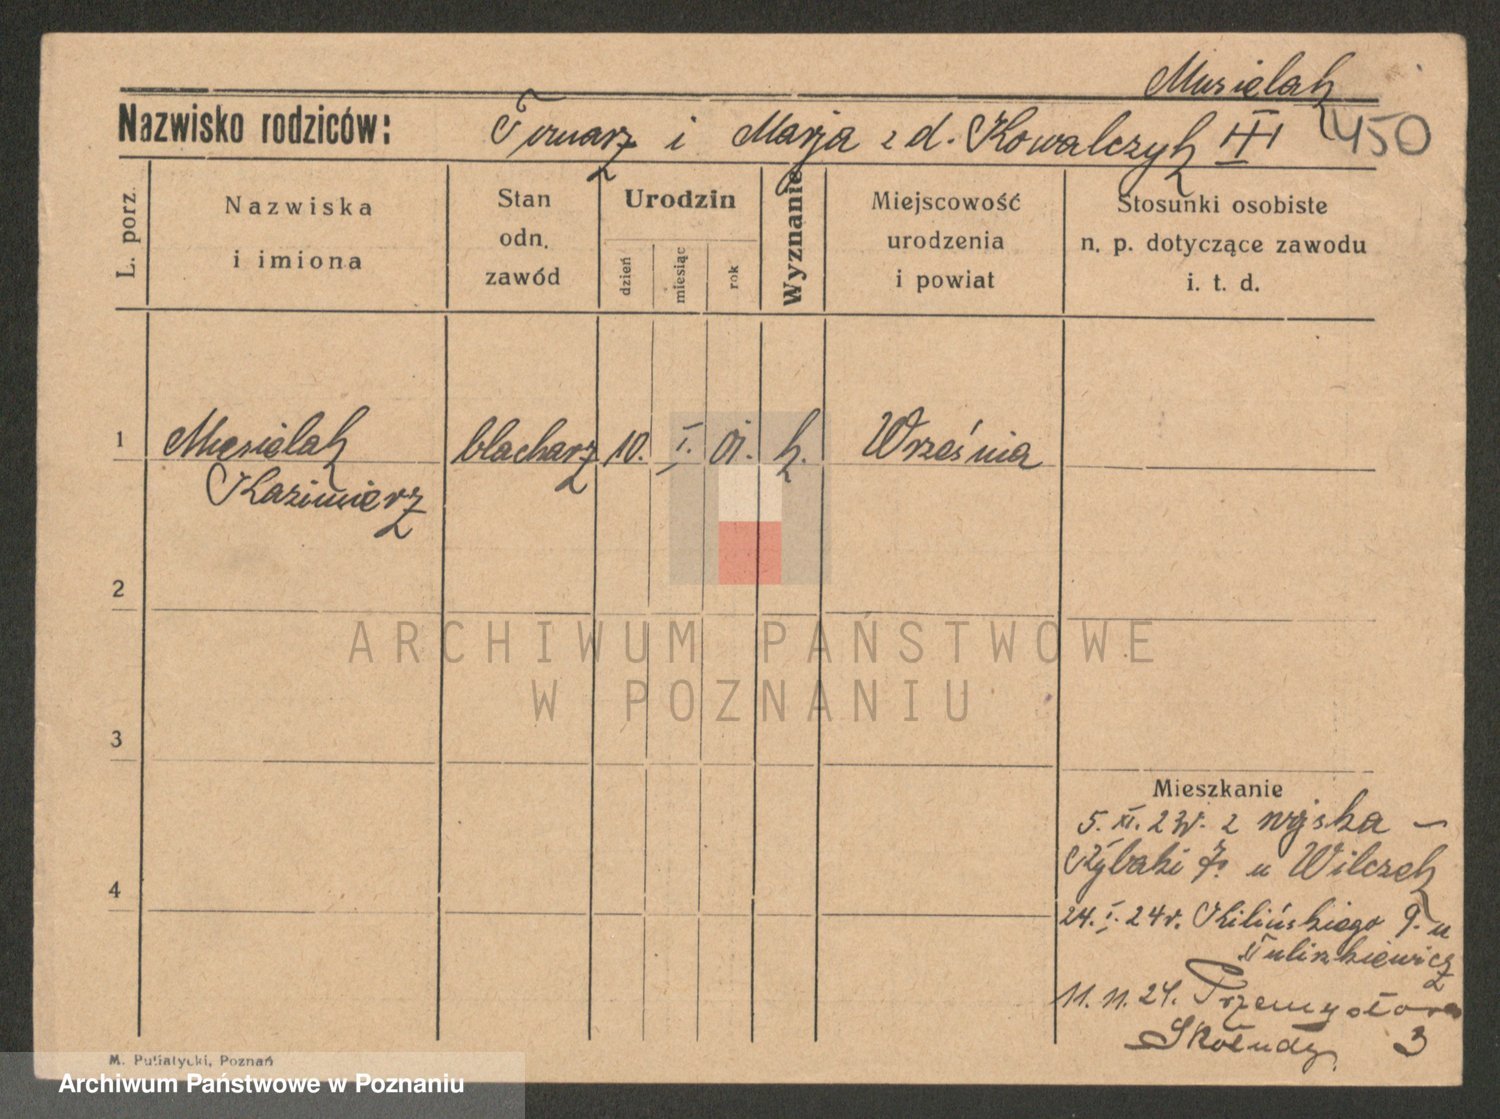 Musielak
Nazwisko rodziców: Tomasz i Marja z d. Kowalczyk III 450
L. porz.
Nazwiska
i imiona
Stan
odn.
zawód
Urodzin
dzień
miesiąc
rok
Wyznanie
Miejscowość
urodzenia
i powiat
Stosunki osobiste
n. p. dotyczące zawodu
i. t. d.
1 Musielak blacharz 10. I. 01. k. Września
Kazimierz
2
ARCHIWUM PAŃSTWOWE
W POZNANIU
3
Mieszkanie
5. XI. 23r. z wojska –
Rybaki 7. u Wilczek
4
24. I. 24r. Kilińskiego 9. u
11. 11. 24. Przemysłowa
3
M. Putiatycki, Poznań
Archiwum Państwowe w Poznaniu